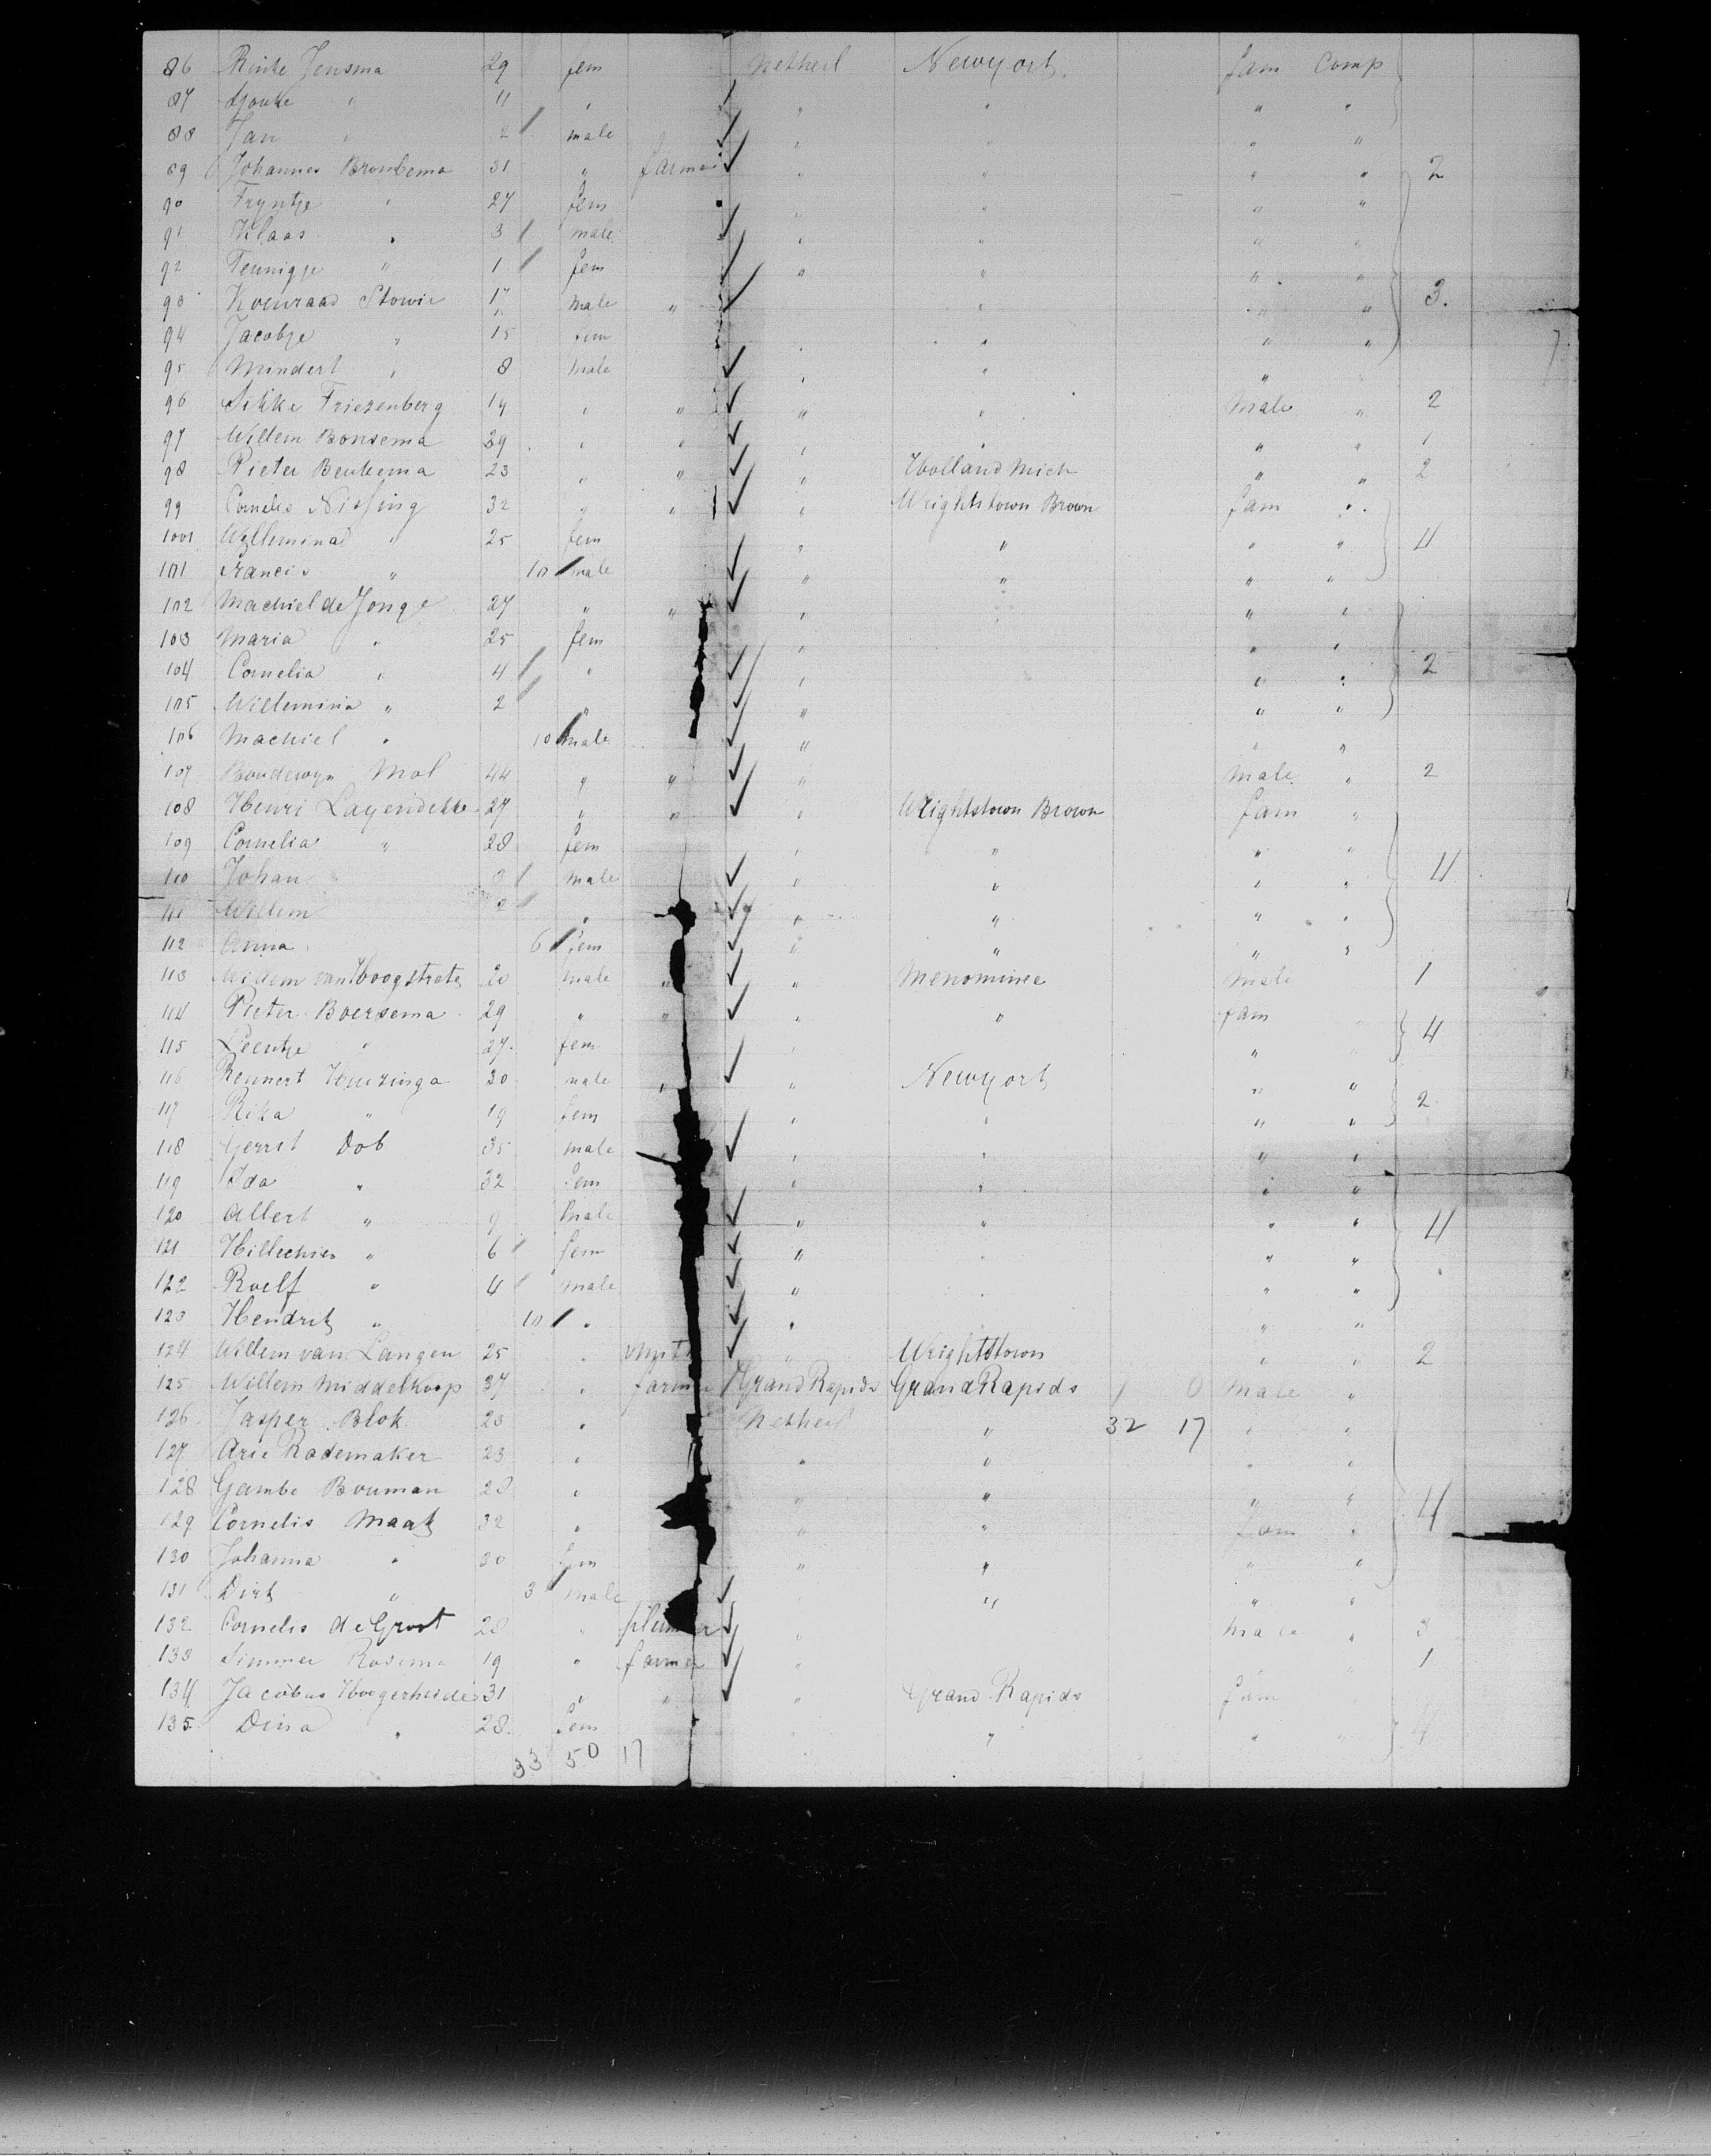 86 Rinke Jensma 29 fem Netherl Newyork fam Comp
87 Sjouke " 11 " " " " "
88 Jan " 2 male " " " "
89 Johannes Bronkema 31 " farmer " " " " 2
90 Tryntje " 27 fem " " " "
91 Klaas " 3 male " " " "
92 Teunigje " 1 fem " " " "
93 Koenraad Stowie 17 male " " " " 3.
94 Jacobje " 15 fem " " " "
95 Mindert " 8 male " " "
96 Sikke Friezenberg 19 " " " " Male " 2
97 Willem Bonsema 39 " " " " " " 1
98 Pieter Beukema 23 " " " Holland Mich " " 2
99 Cornelis Nissing 32 " " " Wrightstown Brown fam "
100 Willemina " 25 fem " " " " 4
101 Francis " 10 male " " " "
102 Machiel de Jonge 27 " " " " "
103 Maria " 25 fem " " "
104 Cornelia " 4 " " " " 2
105 Willemina " 2 " " " "
106 Machiel " 10 male " " "
107 Boudewyn Mol 44 " " " Male " 2
108 Henri Layendekk 27 " " " Wrightstown Brown fam "
109 Cornelia " 28 fem " " " "
110 Johan male " " " " 4
111 Willem 2 " " " " "
112 Anna 6 fem " " " "
113 Willem van Hoogstrate 20 male " " Menominee Male 1
114 Pieter Boersema 29 " " " " fam
115 Leentje " 27 fem " " 4
116 Rennert Huizinga 30 male " " Newyork " "
117 Rika " 19 fem " " " " 2
118 Gerrit Dob 35 male " " " "
119 Ida " 32 fem " " " "
120 Albert " 9 Male " " " " 4
121 Hillechien " 6 fem " " " "
122 Roelf " 4 male " " " "
123 Hendrik " 10 " " " " "
124 Willem van Langen 25 " " Wrightstown " " 2
125 Willem Middelkoop 37 " farmer Grand Rapids Grand Rapids 1 0 Male "
126 Jasper Blok 23 " Netherl " 32 17 " "
127 Arie Rademaker 23 " " " " "
128 Gambe Bouman 28 " " " " " 4
129 Cornelis Maak 32 " " " fam "
130 Johanna " 30 fem " " " "
131 Dirk " 3 male " " "
132 Cornelis de Groot 28 " plumber " Male " 3
133 Simmer Rosema 19 " farmer " 1
134 Jacobus Hoogerheide 31 " " " Grand Rapids fam
135 Dina " 28 fem " " " 4
33 50 17